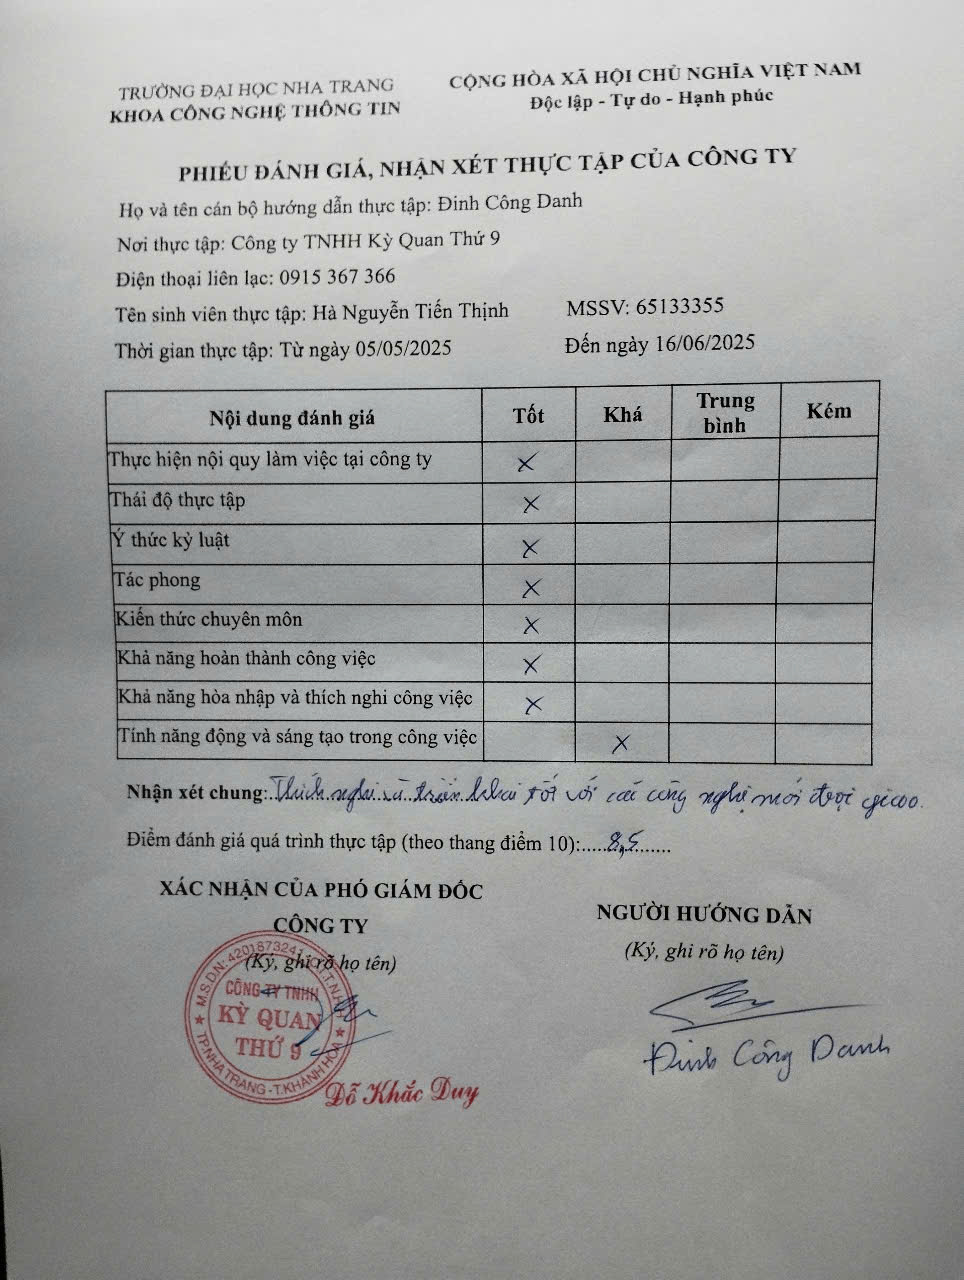 TRƯỜNG ĐẠI HỌC NHA TRANG
KHOA CÔNG NGHỆ THÔNG TIN
CỘNG HÒA XÃ HỘI CHỦ NGHĨA VIỆT NAM
Độc lập - Tự do - Hạnh phúc
PHIẾU ĐÁNH GIÁ, NHẬN XÉT THỰC TẬP CỦA CÔNG TY
Họ và tên cán bộ hướng dẫn thực tập: Đinh Công Danh
Nơi thực tập: Công ty TNHH Kỳ Quan Thứ 9
Điện thoại liên lạc: 0915 367 366
Tên sinh viên thực tập: Hà Nguyễn Tiến Thịnh MSSV: 65133355
Thời gian thực tập: Từ ngày 05/05/2025 Đến ngày 16/06/2025
Nội dung đánh giá Tốt Khá Trung bình Kém
Thực hiện nội quy làm việc tại công ty X
Thái độ thực tập X
Ý thức kỷ luật X
Tác phong X
Kiến thức chuyên môn X
Khả năng hoàn thành công việc X
Khả năng hòa nhập và thích nghi công việc X
Tính năng động và sáng tạo trong công việc X
Nhận xét chung: Thích nghi và triển khai tốt với các công nghệ mới được giao.
Điểm đánh giá quá trình thực tập (theo thang điểm 10):.....8,5.......
XÁC NHẬN CỦA PHÓ GIÁM ĐỐC
CÔNG TY
(Ký, ghi rõ họ tên)
NGƯỜI HƯỚNG DẪN
(Ký, ghi rõ họ tên)
M.S.D.N: 4201673241
CÔNG TY TNHH
KỲ QUAN
THỨ 9
TP.NHA TRANG - T.KHÁNH HÒA
Đỗ Khắc Duy
Đinh Công Danh